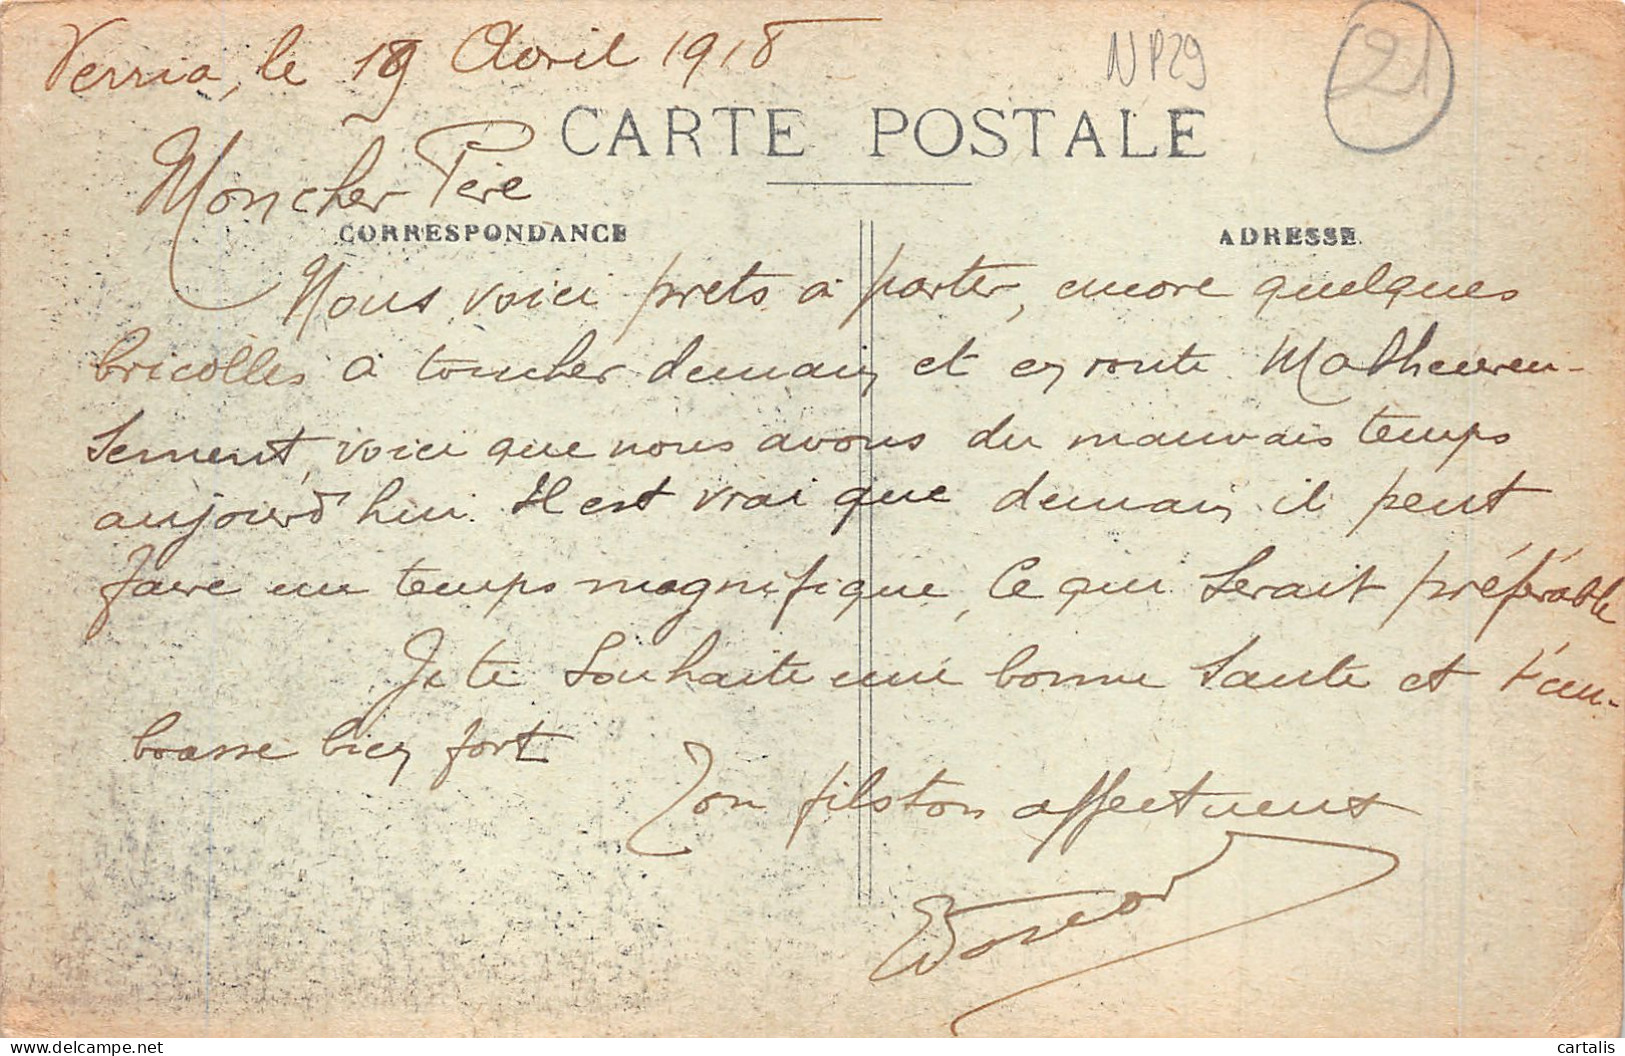 Verria, le 19 Avril 1918
NP29
21
CARTE POSTALE
Mon cher Père
CORRESPONDANCE
ADRESSE
Nous voici prets à partir, encore quelques
bricolles à toucher demain et en route. Malheureu-
sement, voici que nous avons du mauvais temps
aujourd'hui. Il est vrai que demain il peut
faire un temps magnifique, ce qui serait préférable
Je te souhaite une bonne santé et t'em-
brasse bien fort
Ton fiston affectueux
cartalis